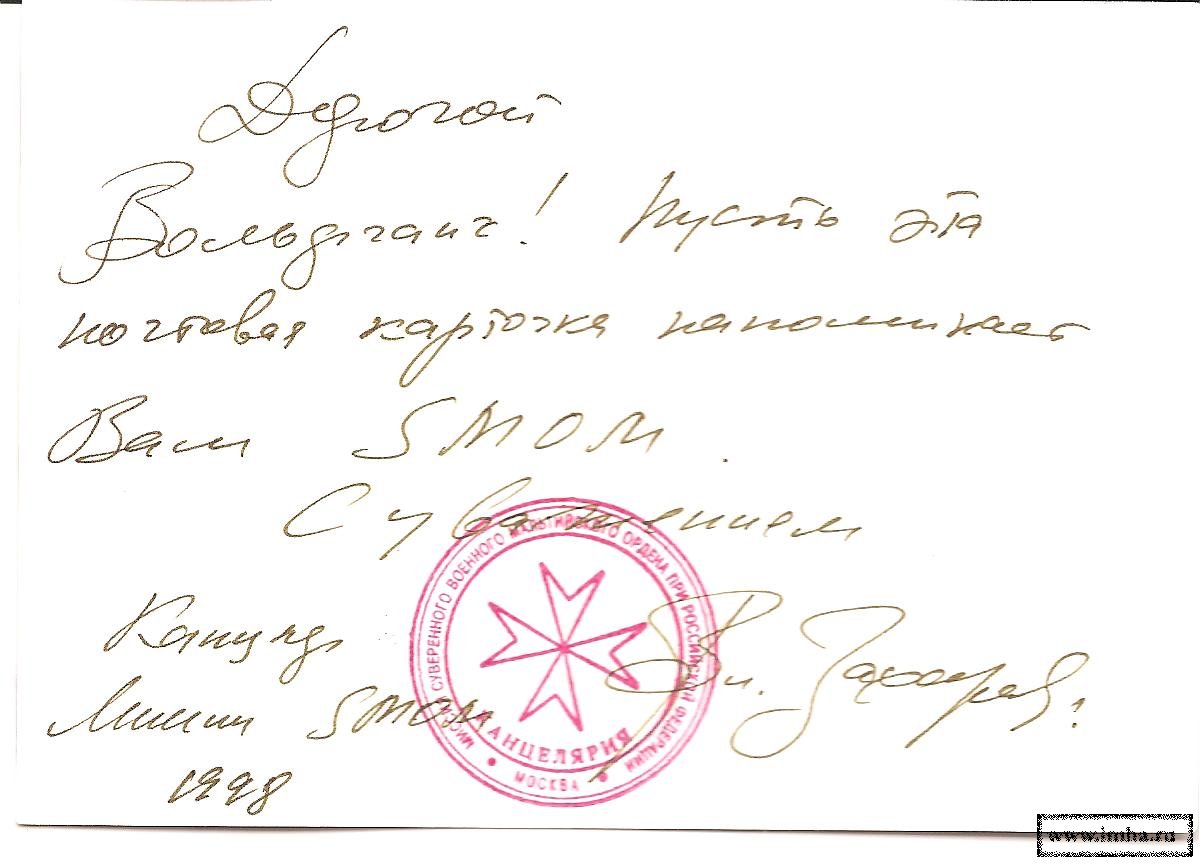 Дорогой
Вольфганг! Пусть эта
почтовая карточка напоминает
Вам SMOM.
С уважением
Канцлер
Миссии SMOM
Вл. Захаров.
1998
МИССИЯ СУВЕРЕННОГО ВОЕННОГО МАЛЬТИЙСКОГО ОРДЕНА ПРИ РОССИЙСКОЙ ФЕДЕРАЦИИ
КАНЦЕЛЯРИЯ
• МОСКВА •
www.imha.ru